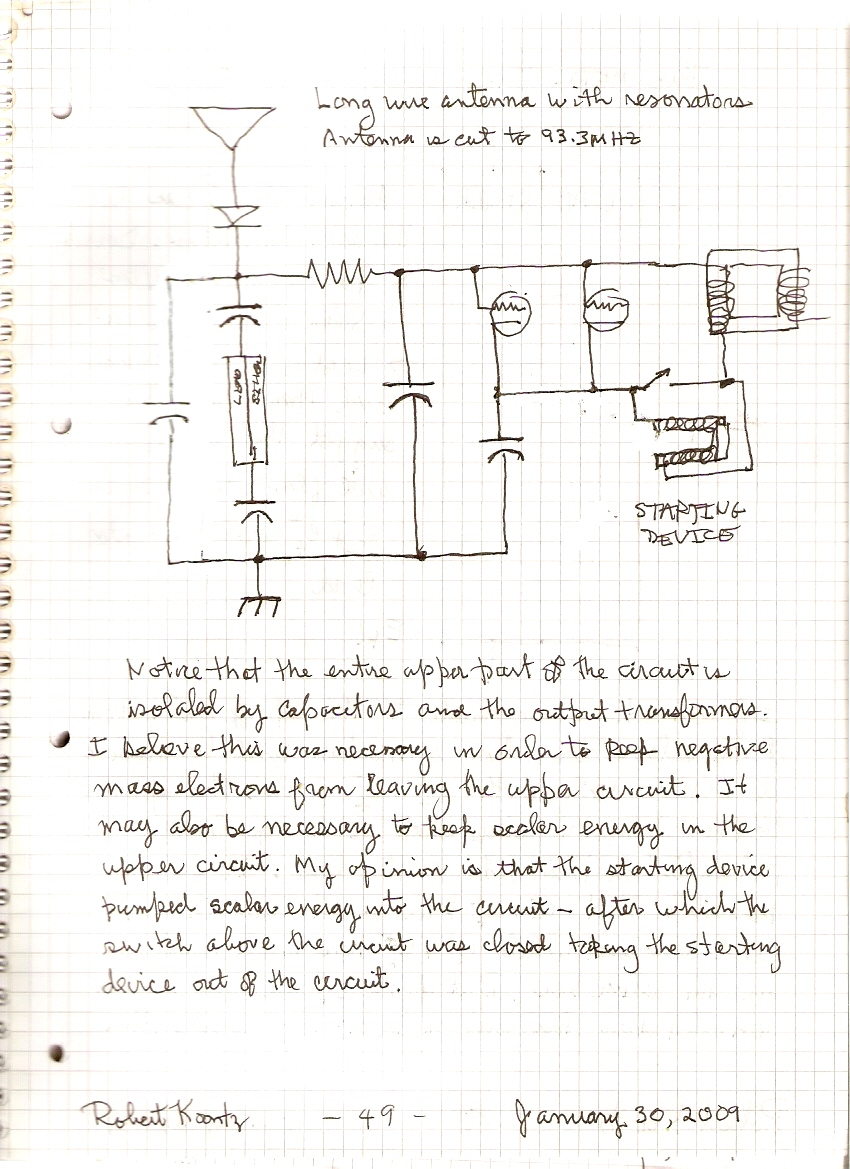 Long wire antenna with resonators
Antenna is cut to 93.3MHZ
STARTING
DEVICE
Notice that the entire upper part of the circuit is
isolated by capacitors and the output transformers.
I believe this was necessary in order to keep negative
mass electrons from leaving the upper circuit. It
may also be necessary to keep scalar energy in the
upper circuit. My opinion is that the starting device
pumped scalar energy into the circuit - after which the
switch above the circuit was closed taking the starting
device out of the circuit.
Robert Koontz
- 49 -
January 30, 2009